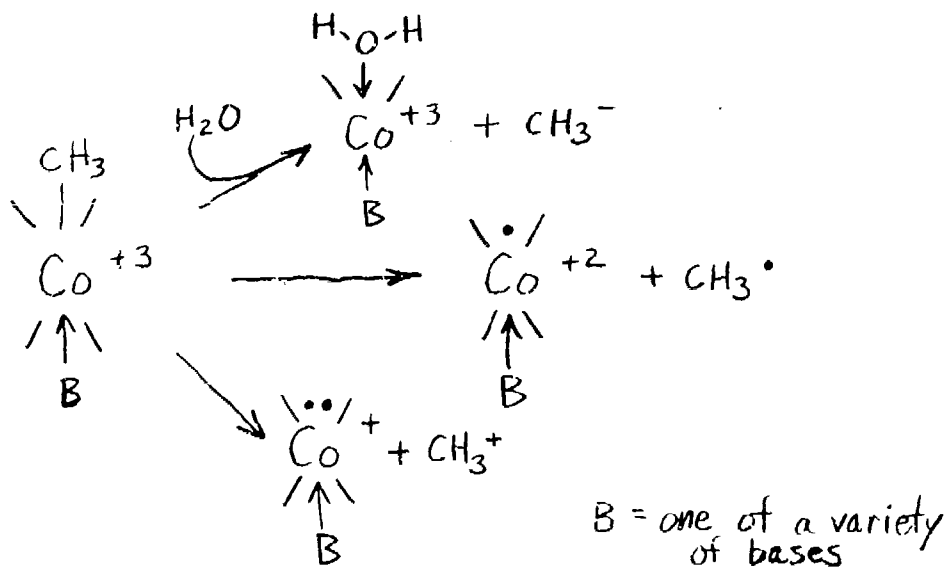 H O H
H₂O
Co⁺³ + CH₃⁻
B
CH₃
Co⁺³
B
Co⁺² + CH₃•
B
Co⁺ + CH₃⁺
B
B = one of a variety
of bases